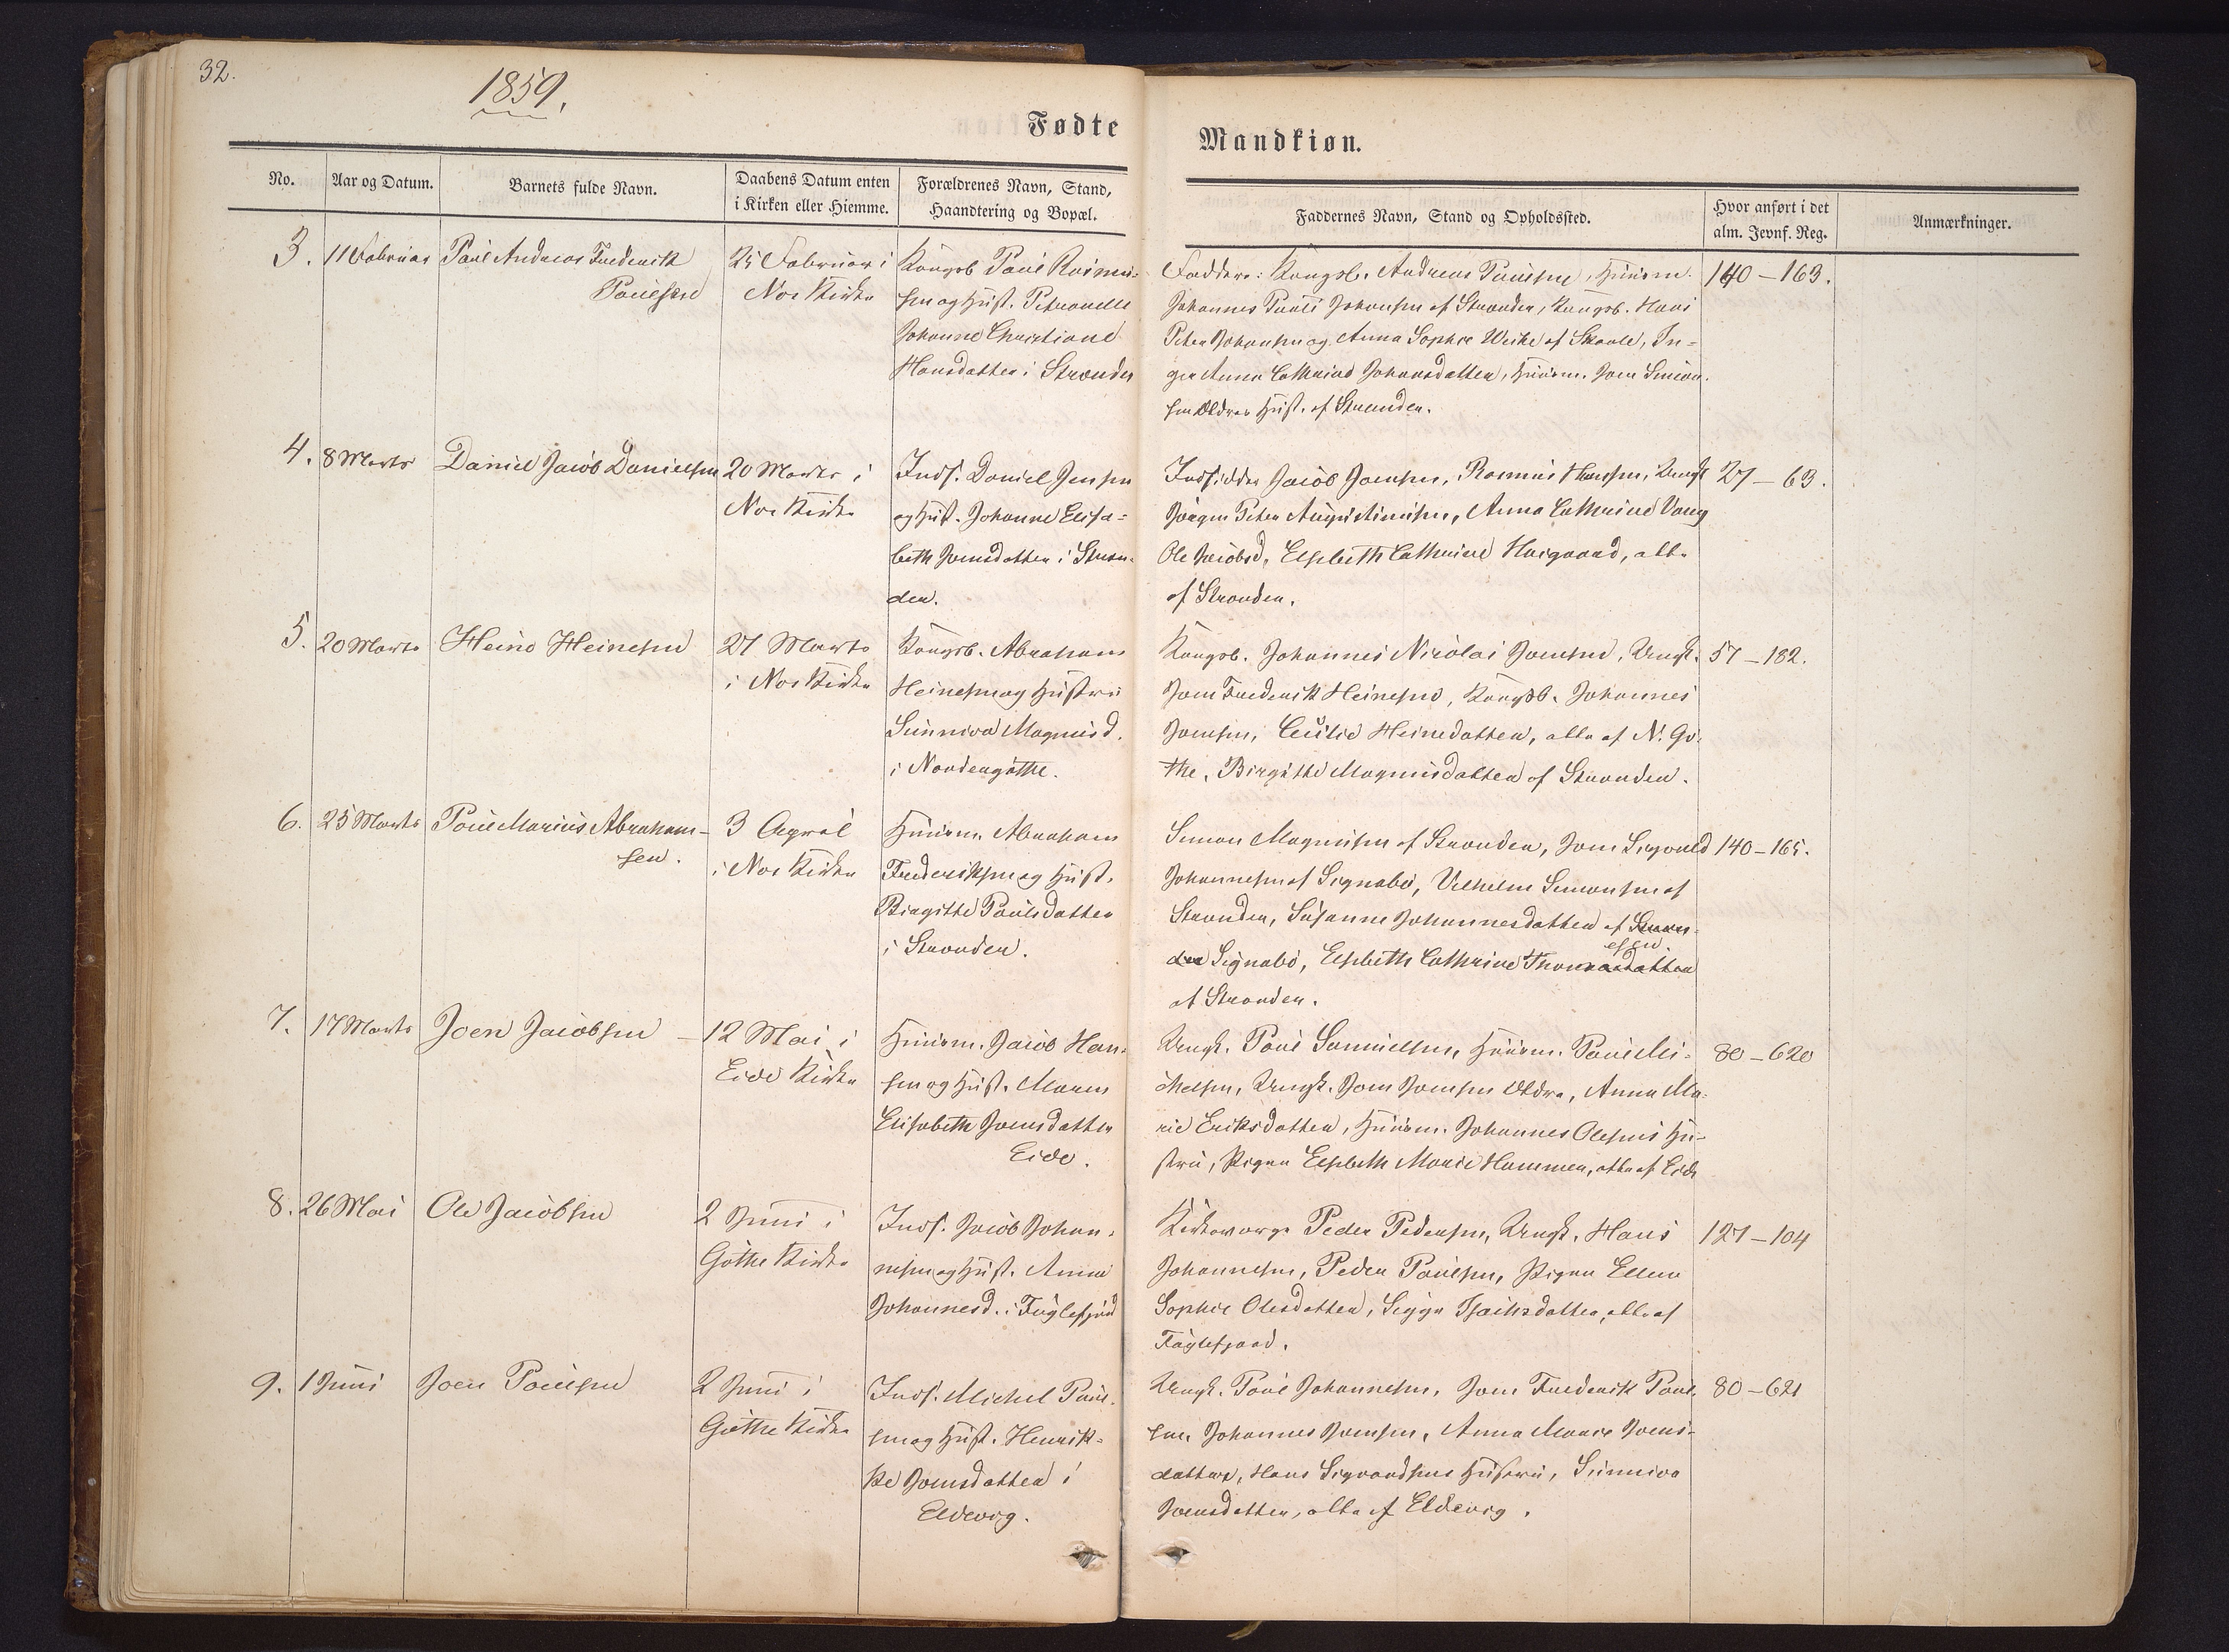 32.
1859.
Fødte
Mandkiøn.
No.
Aar og Datum.
Barnets fulde Navn.
Daabens Datum enten
i Kirken eller Hiemme.
Forældrenes Navn, Stand,
Haandtering og Bopæl.
Faddernes Navn, Stand og Opholdssted.
Hvor anført i det
alm. Jevnf. Reg.
Anmærkninger.
3.
11 Februar
Poul Andreas Frederik
Poulsen
25 Februar i
Nes Kirke
Kongsb. Poul Rasmu-
sen og Hust. Petronelle
Johanne Christiane
Hansdatter i Strænder
Faddere: Kongsb. Andreas Poulsen, Huusm.
Johannes Pauli Johansen af Strænder, Kongsb. Hans
Peter Johansen og Anna Sophie Weihe af Skaale, In-
ger Anna Cathrine Johansdatter, Huusm. Joen Simon-
sen Ældres Hust. af Strænder.
140-163.
4.
8 Marts
Daniel Jacob Danielsen
20 Marts i
Nes Kirke
Inds. Daniel Jensen
og Hust. Johanne Elisa-
beth Joensdatter i Stræn-
der.
Indsidder Jacob Joensen, Rasmus Hansen, Ungk.
Jørgen Peter Augustinusen, Anna Cathrine
Ole Jacobsd, Elsebeth Cathrine Huusgaard, alle
af Strænder.
27-63.
5.
20 Marts
Heine Heinesen
27 Marts
i Nes Kirke
Kongsb. Abraham
Heinesen og Hustru
Sunniva Magnusd.
i Nordengøthe.
Kongsb. Johannes Nicolai Joensen, Ungk.
Joen Frederik Heinesen, Kongsb. Johannes
Joensen, Cecilie Heinedatter, alle af N. Gø-
the, Birgithe Magnusdatter af Strænder.
57-182.
6.
25 Marts
Poul Marius Abraham-
sen.
3 April
i Nes Kirke
Huusm. Abraham
Frederiksen og Hust.
Birgitte Poulsdatter
i Strænder.
Simon Magnusen af Strænder, Joen Sigvald
Johannesen af Signabø, Vilhelm Simonsen af
Strænder, Susanne Johannesdatter af Stræn-
der Signabø, Elsebeth Cathrine Thomasdatter
esen
af Strænder.
140-165.
7.
17 Marts
Joen Jacobsen
12 Mai i
Eide Kirke
Huusm. Jacob Han-
sen og Hust. Maren
Elisabeth Joensdatter
Eide.
Ungk. Poul Samuelsen, Huusm. Poul Mi-
chelsen, Ungk. Joen Joensen Ældre, Anna Ma-
rie Eriksdatter, Huusm. Johannes Olesens Hu-
stru, Pigen Elsebeth Marie Hammer, alle af Eide
80-620
8.
26 Mai
Ole Jacobsen
2 Juni i
Gøthe Kirke
Inds. Jacob Johan-
nesen og Hust. Anna
Johannesd. i Fuglefjord
Kirkeværge Peder Pedersen, Ungk. Hans
Johannesen, Peder Poulsen, Pigen Ellen
Sophie Olesdatter, Sigga Isachsdatter, alle af
Fuglefjord.
127-104
9.
1 Juni
Joen Poulsen
2 Juni i
Gøthe Kirke
Inds. Michel Poul-
sen og Hust. Henrik-
ke Joensdatter i
Eldevig.
Ungk. Poul Johannesen, Joen Frederik Poul-
sen, Johannes Joensen, Anna Marie Joens-
datter, Hans Sigvardsens Hustru, Sunniva
Joensdatter, alle af Eldevig.
80-621